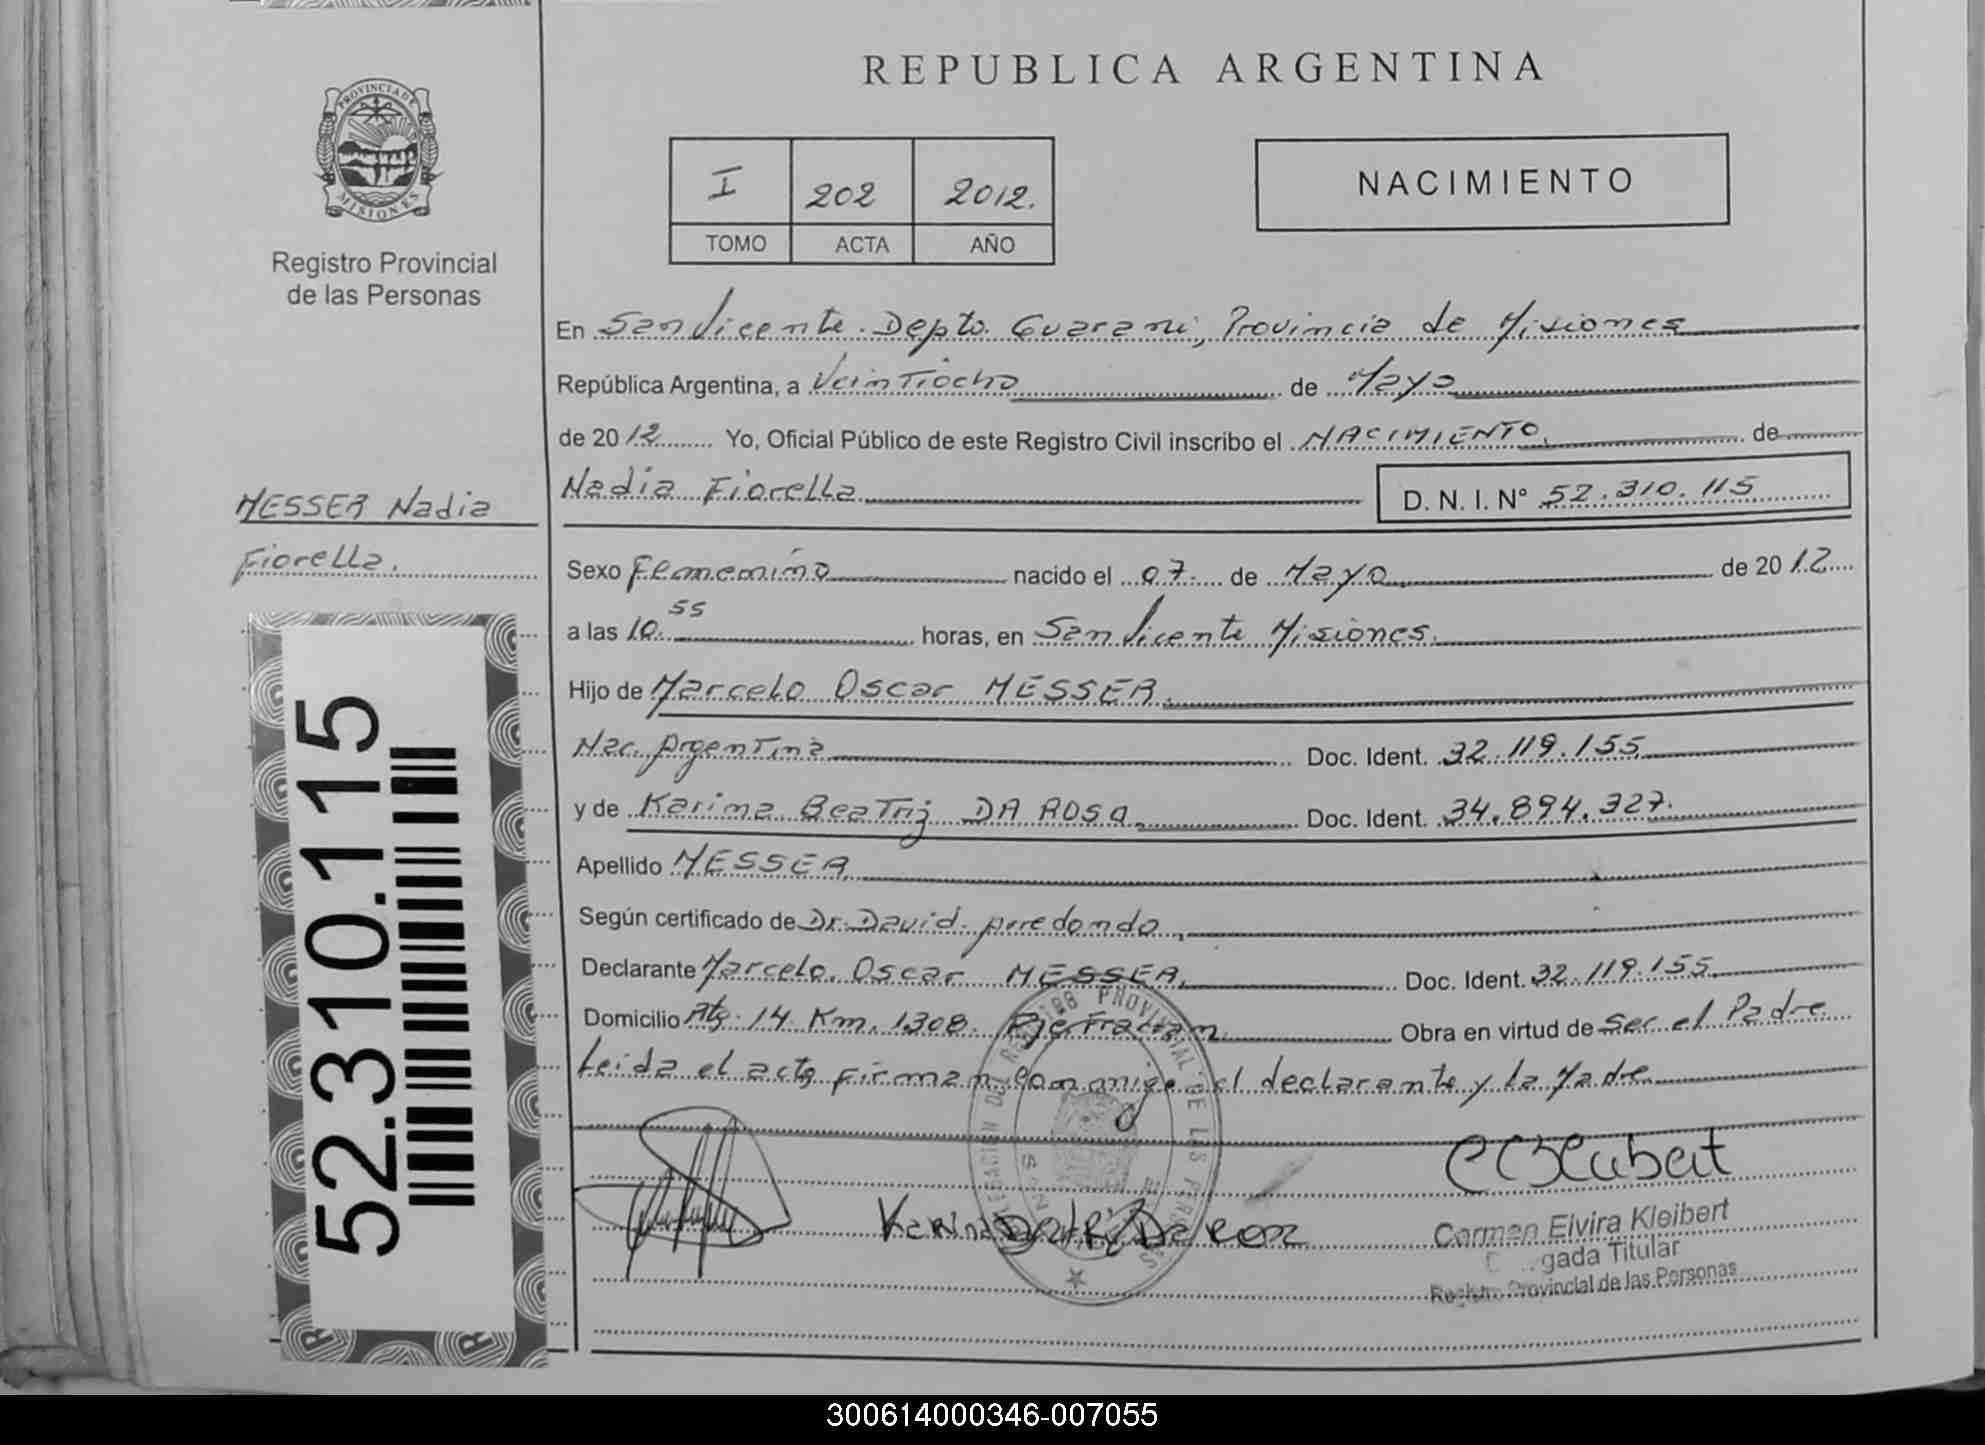 REPUBLICA ARGENTINA
PROVINCIA DE
MISIONES
Registro Provincial
de las Personas
I 202 2012.
TOMO ACTA AÑO
NACIMIENTO
En San Vicente. Depto. Guarani, Provincia de Misiones
República Argentina, a Veintiocho de Mayo
de 2012 Yo, Oficial Público de este Registro Civil inscribo el NACIMIENTO, de
Nadia Fiorella D. N. I. N° 52.310.115
MESSER Nadia
Fiorella.
Sexo Femenino nacido el 07 de Mayo de 2012
a las 10.55 horas, en San Vicente Misiones.
Hijo de Marcelo Oscar MESSER.
Nac. Argentina Doc. Ident. 32.119.155
y de Karina Beatriz DA ROSA Doc. Ident. 34.894.327.
Apellido MESSER
Según certificado de Dr. David Arredondo,
Declarante Marcelo Oscar MESSER, Doc. Ident. 32.119.155
Domicilio Rta. 14 Km. 1308. Pje Fracran Obra en virtud de Ser el Padre
Leida el acta firman conmigo el declarante y la Madre
52.310.115
Carmen Elvira Kleibert
gada Titular
Registro Provincial de las Personas
300614000346-007055